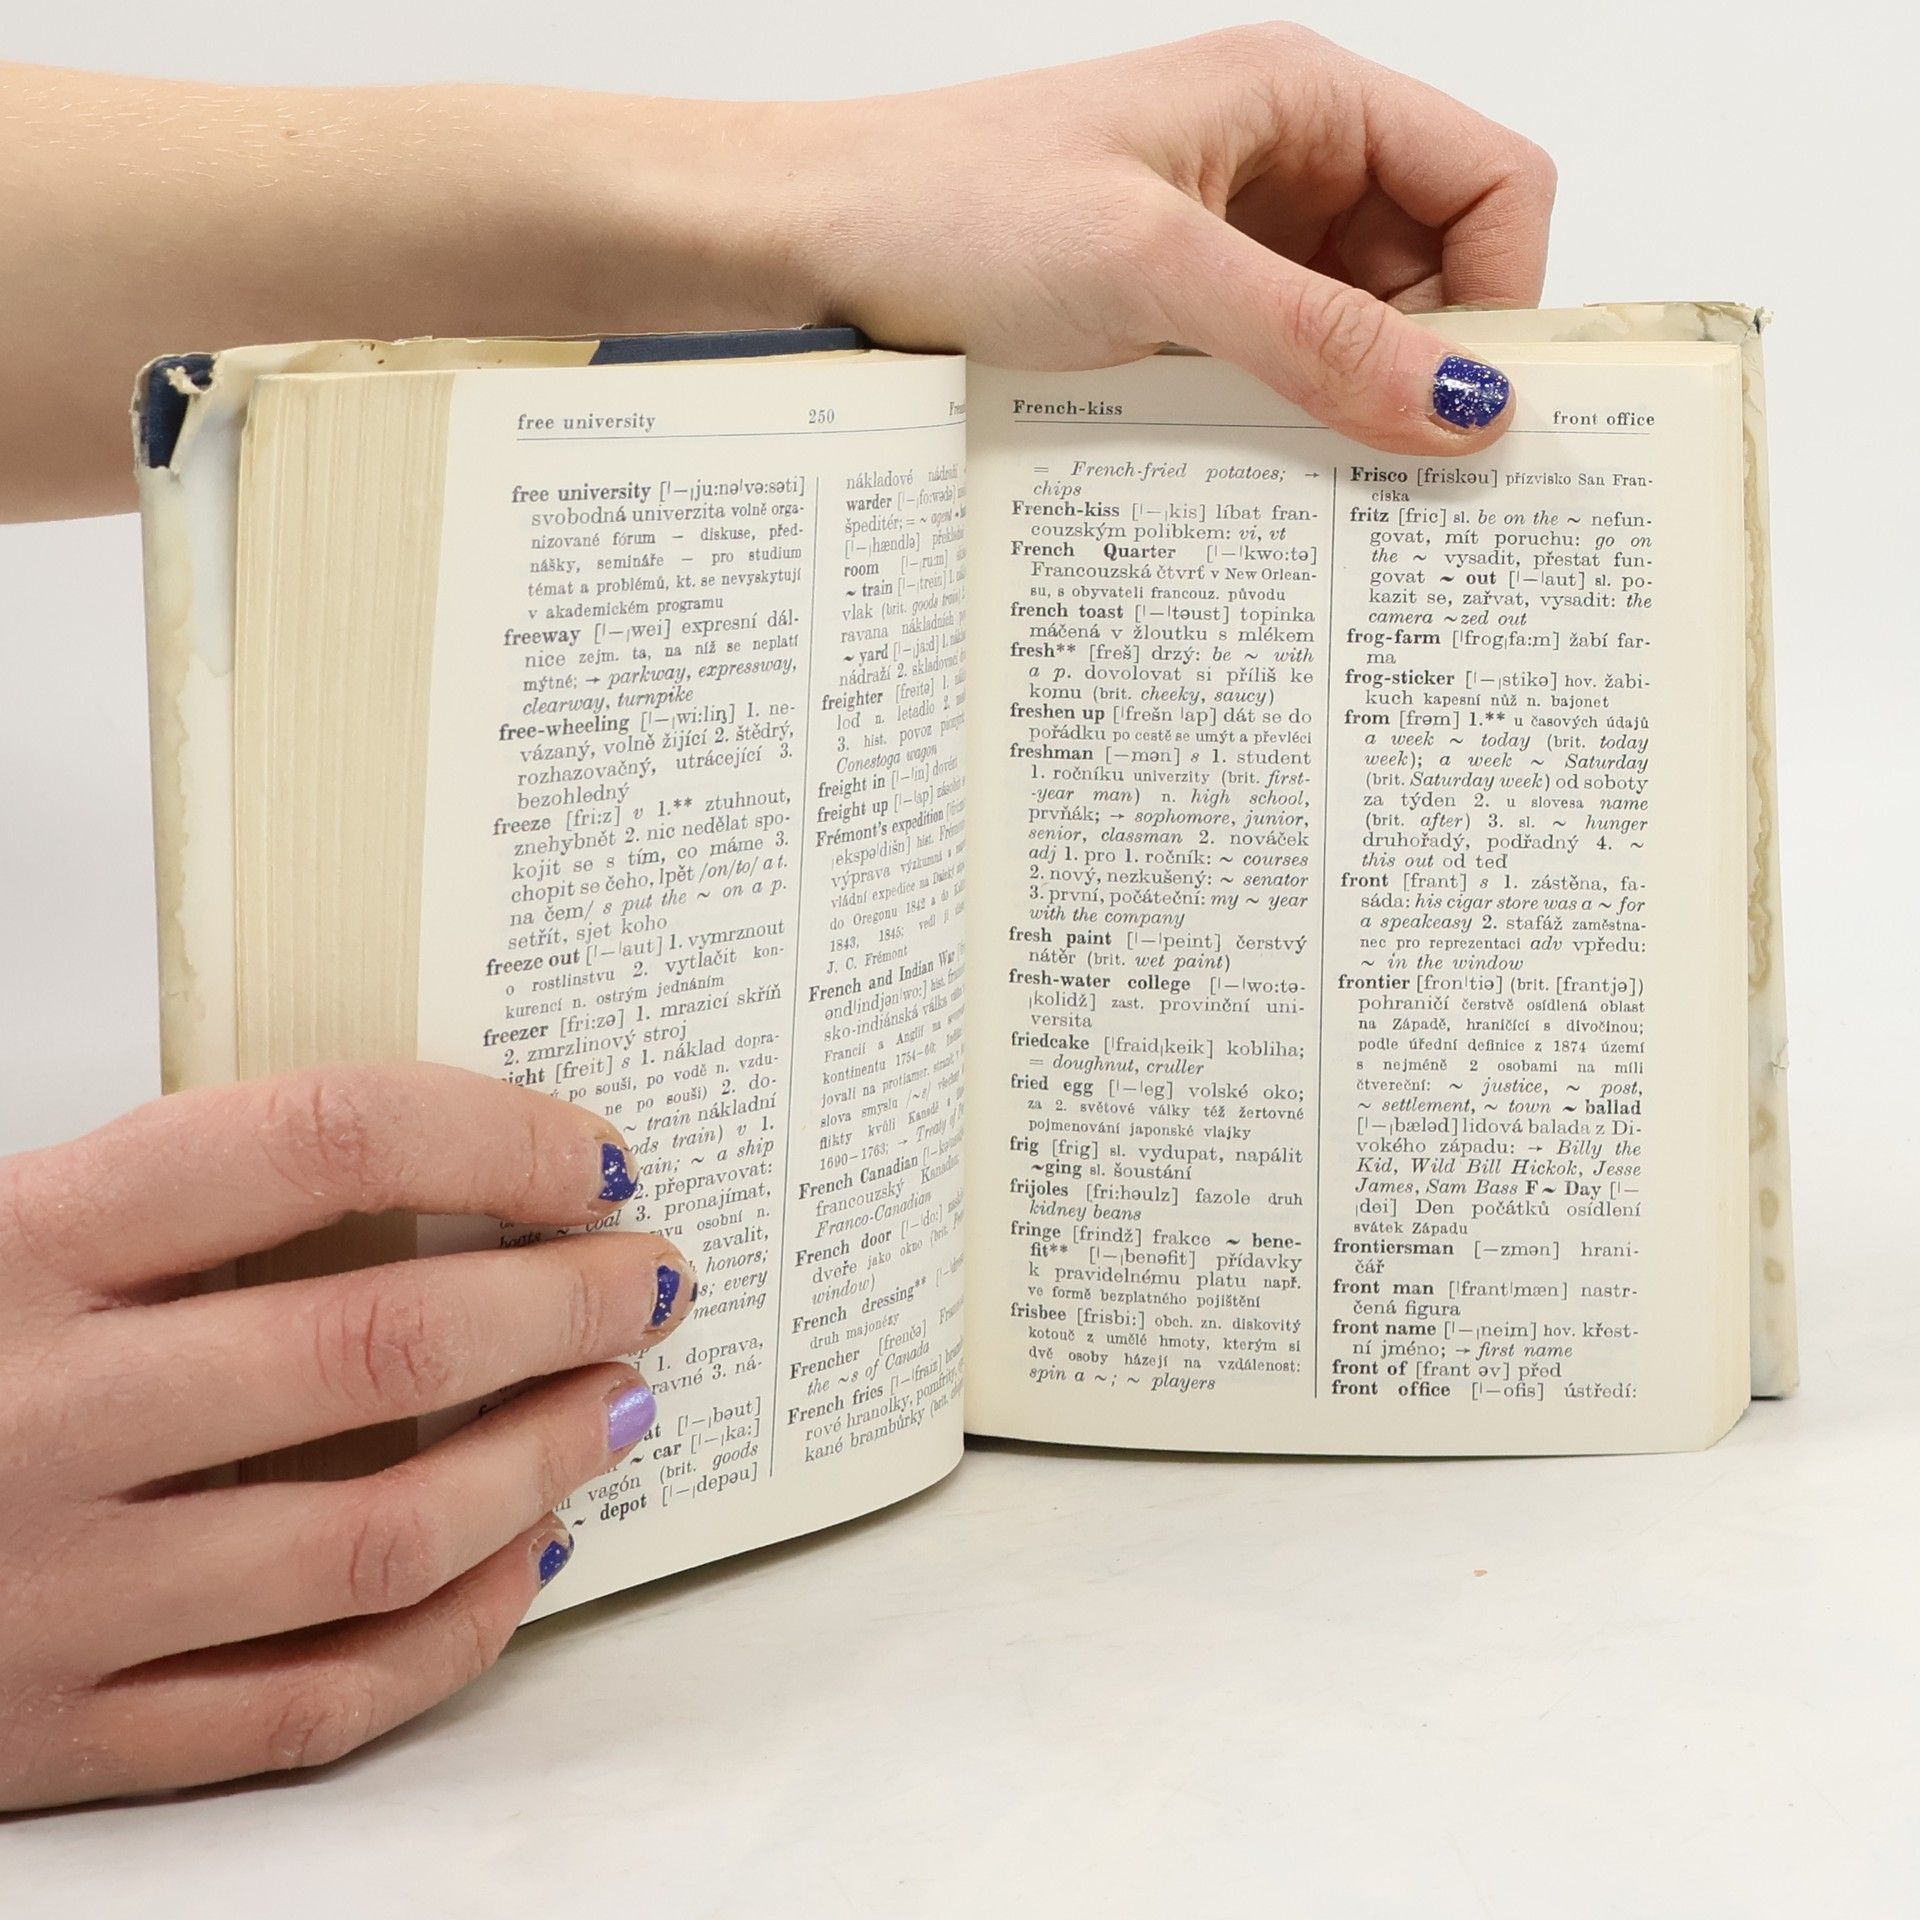 free university 250
free university [ˈ–ˌju:nəˈvə:səti]
svobodná univerzita volně orga-
nizované fórum — diskuse, před-
nášky, semináře — pro studium
témat a problémů, kt. se nevyskytují
v akademickém programu
freeway [ˈ–ˌwei] expresní dál-
nice zejm. ta, na níž se neplatí
mýtné; → parkway, expressway,
clearway, turnpike
free-wheeling [ˈ–ˌwi:liŋ] 1. ne-
vázaný, volně žijící 2. štědrý,
rozhazovačný, utrácející 3.
bezohledný
freeze [fri:z] v 1.** ztuhnout,
znehybnět 2. nic nedělat spo-
kojit se s tím, co máme 3.
chopit se čeho, lpět /on/to/ a t.
na čem/ s put the ~ on a p.
setřít, sjet koho
freeze out [ˈ–ˈaut] 1. vymrznout
o rostlinstvu 2. vytlačit kon-
kurenci n. ostrým jednáním
freezer [fri:zə] 1. mrazicí skříň
2. zmrzlinový stroj
[freit] s 1. náklad dopra-
po souši, po vodě n. vzdu-
ne po souši) 2. do-
~ train nákladní
train) v 1.
~ a ship
2. přepravovat:
coal 3. pronajímat,
osobní n.
zavalit,
honors;
every
meaning
1. doprava,
3. ná-
[ˈ–ˌbəut]
~ car [ˈ–ˌka:]
vagón (brit. goods
~ depot [ˈ–ˌdepəu]
nákladové nádraží
warder [ˈ–ˌfo:wədə]
špeditér; = ~ agent
[ˈ–ˌhændlə]
room [ˈ–ˌru:m]
~ train [ˈ–ˌtrein] 1.
vlak (brit. goods train)
ravana nákladních
~ yard [ˈ–ˌja:d] 1.
nádraží 2. skladovací
freighter [freitə] 1.
loď n. letadlo 2.
3. hist. povoz
Conestoga wagon
freight in [ˈ–ˈin]
freight up [ˈ–ˈap]
Frémont's expedition
ˌekspəˈdišn] hist.
výprava výzkumná a
vládní expedice na
do Oregonu 1842 a do
1843, 1845; vedl ji
J. C. Frémont
French and Indian War
əndˈindjənˈwo:] hist.
sko-indiánská válka
Francií a Anglií na
kontinentu 1754–60;
jovali na protiamer. straně,
slova smyslu /~s/ všechny
flikty kvůli Kanadě
1690–1763; → Treaty of
French Canadian
francouzský Kanaďan;
Franco-Canadian
French door [ˈ–ˈdo:]
dveře jako okno (brit.
window)
French dressing**
druh majonézy
Frencher [frenčə]
the ~s of Canada
French fries [ˈ–ˈfraiz]
rové hranolky, pomfrity,
kané brambůrky (brit.
French-kiss front office
= French-fried potatoes; →
chips
French-kiss [ˈ–ˌkis] líbat fran-
couzským polibkem: vi, vt
French Quarter [ˈ–ˈkwo:tə]
Francouzská čtvrť v New Orlean-
su, s obyvateli francouz. původu
french toast [ˈ–ˈtəust] topinka
máčená v žloutku s mlékem
fresh** [freš] drzý: be ~ with
a p. dovolovat si příliš ke
komu (brit. cheeky, saucy)
freshen up [ˈfrešn ˈap] dát se do
pořádku po cestě se umýt a převléci
freshman [–mən] s 1. student
1. ročníku univerzity (brit. first-
-year man) n. high school,
prvňák; → sophomore, junior,
senior, classman 2. nováček
adj 1. pro 1. ročník: ~ courses
2. nový, nezkušený: ~ senator
3. první, počáteční: my ~ year
with the company
fresh paint [ˈ–ˈpeint] čerstvý
nátěr (brit. wet paint)
fresh-water college [ˈ–ˈwo:tə-
ˌkolidž] zast. provinční uni-
versita
friedcake [ˈfraidˌkeik] kobliha;
= doughnut, cruller
fried egg [ˈ–ˈeg] volské oko;
za 2. světové války též žertovné
pojmenování japonské vlajky
frig [frig] sl. vydupat, napálit
~ging sl. šoustání
frijoles [fri:həulz] fazole druh
kidney beans
fringe [frindž] frakce ~ bene-
fit** [ˈ–ˌbenəfit] přídavky
k pravidelnému platu např.
ve formě bezplatného pojištění
frisbee [frisbi:] obch. zn. diskovitý
kotouč z umělé hmoty, kterým si
dvě osoby házejí na vzdálenost:
spin a ~; ~ players
Frisco [friskəu] přízvisko San Fran-
ciska
fritz [fric] sl. be on the ~ nefun-
govat, mít poruchu: go on
the ~ vysadit, přestat fun-
govat ~ out [ˈ–ˈaut] sl. po-
kazit se, zařvat, vysadit: the
camera ~zed out
frog-farm [ˈfrogˌfa:m] žabí far-
ma
frog-sticker [ˈ–ˌstikə] hov. žabi-
kuch kapesní nůž n. bajonet
from [frəm] 1.** u časových údajů
a week ~ today (brit. today
week); a week ~ Saturday
(brit. Saturday week) od soboty
za týden 2. u slovesa name
(brit. after) 3. sl. ~ hunger
druhořadý, podřadný 4. ~
this out od teď
front [frant] s 1. zástěna, fa-
sáda: his cigar store was a ~ for
a speakeasy 2. stafáž zaměstna-
nec pro reprezentaci adv vpředu:
~ in the window
frontier [fronˈtiə] (brit. [frantjə])
pohraničí čerstvě osídlená oblast
na Západě, hraničící s divočinou;
podle úřední definice z 1874 území
s nejméně 2 osobami na míli
čtvereční: ~ justice, ~ post,
~ settlement, ~ town ~ ballad
[ˈ–ˌbæləd] lidová balada z Di-
vokého západu: → Billy the
Kid, Wild Bill Hickok, Jesse
James, Sam Bass F~ Day [ˈ–
ˌdei] Den počátků osídlení
svátek Západu
frontiersman [–zmən] hrani-
čář
front man [ˈfrantˈmæn] nastr-
čená figura
front name [ˈ–ˌneim] hov. křest-
ní jméno; → first name
front of [frant əv] před
front office [ˈ–ofis] ústředí: